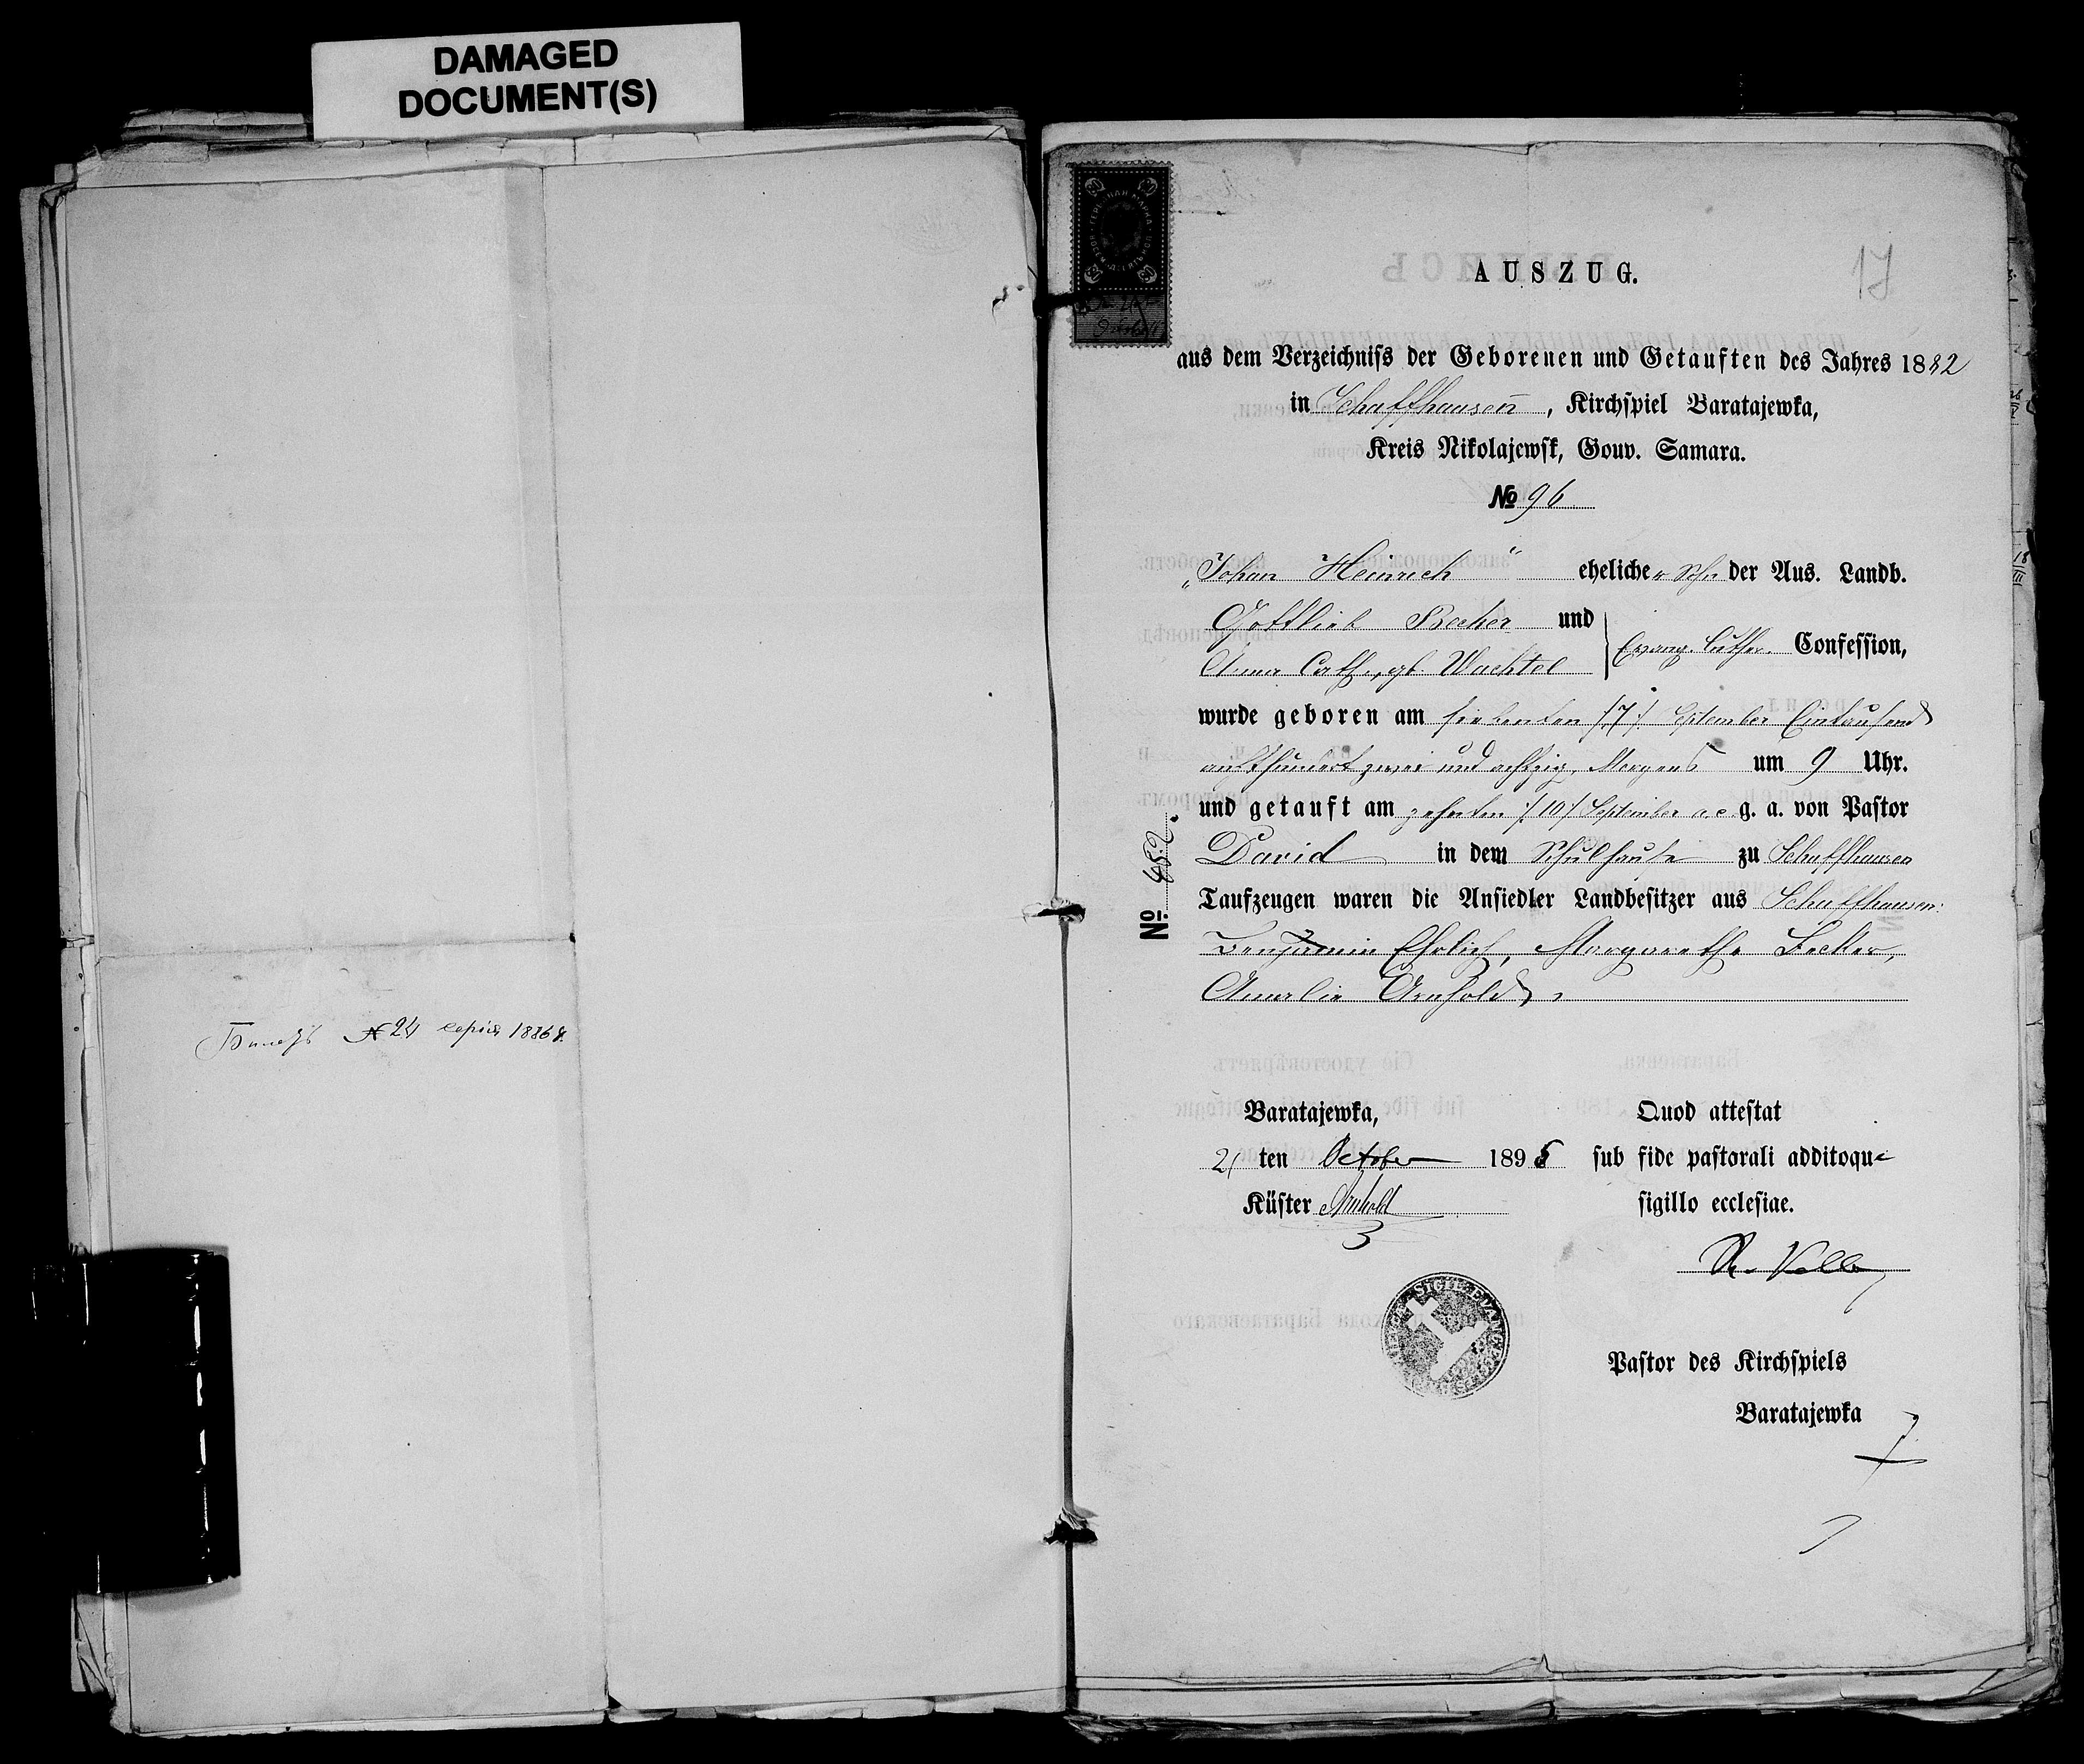 DAMAGED
DOCUMENT(S)
Билетъ № 24 серия 1886 г.
17
AUSZUG.
aus dem Verzeichniſs der Geborenen und Getauften des Jahres 1882
in Schaffhausen, Kirchſpiel Baratajewka,
Kreis Nikolajewſk, Gouv. Samara.
№ 96
„Johan Heinrich“ eheliche r Sohn der Auſ. Landb.
Gottlieb Becker und
Anna Cath., gb. Wachtel
Evang. Luther. Confeſſion,
wurde geboren am siebenten /7/ September Eintausend
achthundert zwei und achtzig, Morgens um 9 Uhr.
und getauft am zehnten /10/ September a. c. g. a. von Paſtor
David in dem Schulhause zu Schaffhausen
Taufzeugen waren die Anſiedler Landbeſitzer aus Schaffhausen:
Benjamin Ehrlich, Margarethe Becker,
Amalie Arnhold
No. 452.
Baratajewka,
21 ten October 1895
Küſter Arnhold
Quod atteſtat
ſub fide paſtorali additoque
ſigillo eccleſiae.
Paſtor des Kirchſpiels
Baratajewka